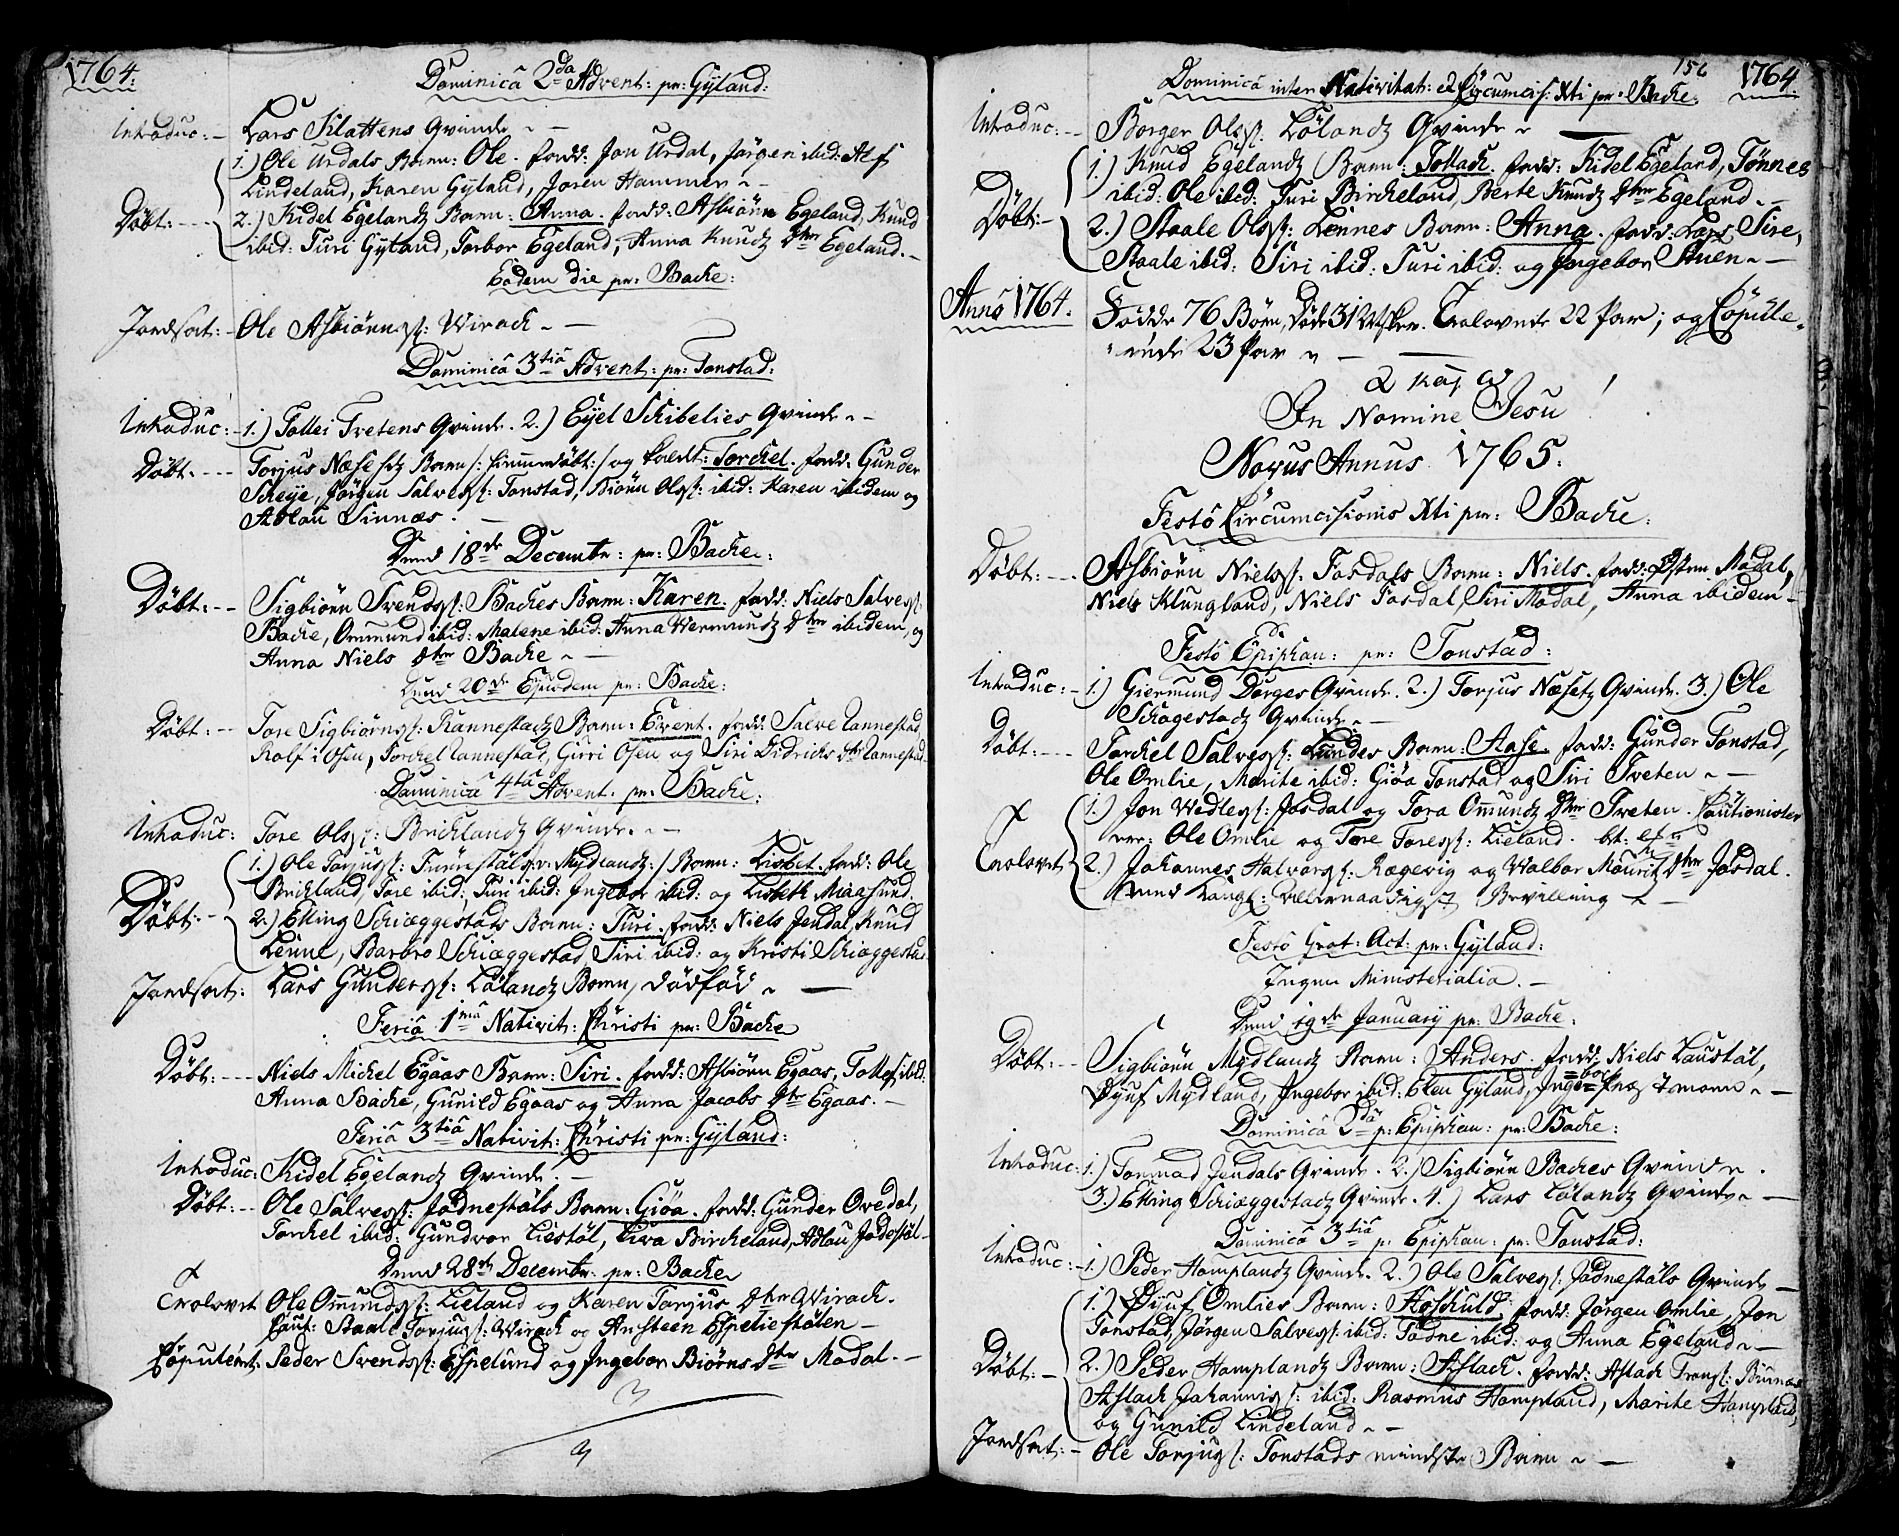 1764.
Dominicâ 2da Advent: pr: Gyland:
Introduc: - Lars Klattens Qvinde
1.) Ole Urdals Barn: Ole. fadd: Jon Urdal, Jørgen ibid: Alf
Lindeland, Karen Gyland, Joren Hammer
Døbt: - - 2.) Kidel Egelandz Barn: Anna. fadd: Asbiörn Egeland, Knud
ibid: Turi Gyland, Torbor Egeland, Anna Knudz Dtter Egeland.
Eodem die pr: Backe:
Jordsat: - Ole Asbiörns: Wirach.
Dominicâ 3tiâ Advent: pr: Tonstad:
Introduc: - 1.) Tollei Tretens Qvinde. 2.) Eyel Schibelies Qvinde
Døbt. - - - Torjus Næsetz Barn /: hiemmedøbt :/ og kaldt: Torckel. fadd: Gunder
Scheye, Jørgen Salves: Tonstad, Biörn Ols: ibid: Karen ibidem og
Adlau Sinnæs.
Dend 18de Decembr: pr: Backe:
Døbt: - - Sigbiörn Svends: Backes Barn: Karen. fadd: Niels Salves:
Backe, Ommund ibid: Malene ibid: Anna Wermundz Dtter ibidem, og
Anna Niels Dtter Backe
Dend 20de Ejusdem pr: Backe:
Døbt: - - Tore Sigbiörns: Rannestadz Barn: Event. fadd: Salve Rannestad,
Rolf i Osen, Torckel Rannestad, Girri Osen og Siri Didrichs Dtr Rannestad
Dominicâ 4tâ Advent. pr: Backe:
Introduc: Tore Ols: Bricklandz Qvinde.
1.) Ole Torjus: /: Mydlandz :/ Barn: Lisbet. fadd: Ole
Brickland, Tore ibid: Turi ibid: Ingebor ibid: og Lisbeth Maasund.
Døbt: - 2.) Elling Schiæggestads Barn: Turi. fadd: Niels Jendal, Knud
Lenne, Barbro Schiæggestad, Siri ibid: og Kristi Schiæggestad
Jordsat: Lars Gunders: Lølandz Barn, dødfød
Feriâ 1mâ Nativit: Christi pr: Backe
Døbt: - - - Niels Michel Egaas Barn: Siri. fadd: Asbiörn Egaas, Tollef ibid.
Anna Backe, Gunild Egaas og Anna Jacobs Dtr Egaas.
Feriâ 3tiâ Nativit: Christi pr: Gyland:
Introduc: Kidel Egelandz Qvinde.
Døbt: - - Ole Salves: Jødnestøls Barn: Giöa. fadd: Gunder Ovedal,
Torckel ibid: Gundvor Liestøl, Liva Birckeland, Adlau Jødestøl
Dend 28de Decembr: pr: Backe
Trolovet Ole Ommunds: Lieland og Karen Torjus Dtter Wirach.
Caut: Staale Torjus: Wirach og Ansteen Espeliestølen
Copuleret. Peder Svends: Espelund og Ingebor Biörns Dtr Modal.
156
1764
Dominicâ inter Nativitat: et Circumcis: Xti pr: Backe.
Introduc: - - Borger Ols: Lølandz Qvinde
1.) Knud Egelandz Barn: Tollach. fadd: Kidel Egeland, Tönnes
ibid: Ole ibid: Turi Birckeland, Berte Knudz Dtter Egeland.
Døbt: - 2.) Staale Ols: Lennes Barn: Anna. fadd: Lars Sire,
Staale ibid: Siri ibid: Turi ibid: og Ingebor Stuen
Anno 1764. Fødde 76 Børn, Døde 31 Msker. Trolovede 22 Par; og Copule-
rede 23 Par
In Nomine Jesu
Novus Annus 1765.
Festo Circumcisionis Xti pr: Backe:
Døbt: - - Asbiörn Niels: Fosdals Barn: Niels. fadd: Osten Modal,
Niels Klungland, Niels Fosdal, Siri Modal, Anna ibidem
Festo Epiphan: pr: Tonstad:
Introduc: - 1.) Giermund Dorges Qvinde. 2.) Torjus Næsetz Qvinde. 3.) Ole
Schogestadz Qvinde
Døbt: - - - Torckel Salves: Lundes Barn: Aase. fadd: Gunder Tonstad,
Ole Omlie, Marite ibid: Giöa Tonstad og Siri Treten
1.) Jon Wedles: Josdal og Tora Ommundz Dtter Treten. Cautionister
ere: Ole Omlie og Tore Tores: Lieland.
Trolovet 2.) Johannes Halvors: Rægevig og Walbor Mouritz Dtter Josdal.
med Kongl: allernaadigst Bevilling
Festo Grat: Act: pr: Gyland:
Ingen Ministerialia.
Dend 19de January pr: Backe.
Døbt: - - Sigbiörn Mydlandz Barn: Anders. fadd: Niels Laustøl,
Dyuf Mydland, Ingebor ibid: Elen Gyland, Ingebor Temore
Dominicâ 2dâ p: Epiphan: pr: Backe:
Introduc: 1.) Tormod Jendals Qvinde. 2.) Sigbiörn Backes Qvinde.
3.) Elling Schiæggestadz Qvinde. 4.) Lars Lølandz Qvinde
Dominicâ 3tiâ p: Epiphan: pr: Tonstad:
Introduc: - 1.) Peder Hamplandz Qvinde. 2.) Ole Salves: Jødnestøls Qvinde
1.) Dyuf Omlies Barn: Aschuld. fadd: Jørgen Omlie, Jon
Tonstad, Jørgen Salves: ibid: Tødne ibid: og Anna Egeland
Døbt: - 2.) Peder Hamplandz Barn: Aslach. fadd: Aslach Trons:
Aslach Johannis: ibid: Rasmus Hampland, Marite Hampland,
og Gunild Lindeland
Jordsat: - Ole Torjus: Tonstads mindste Barn